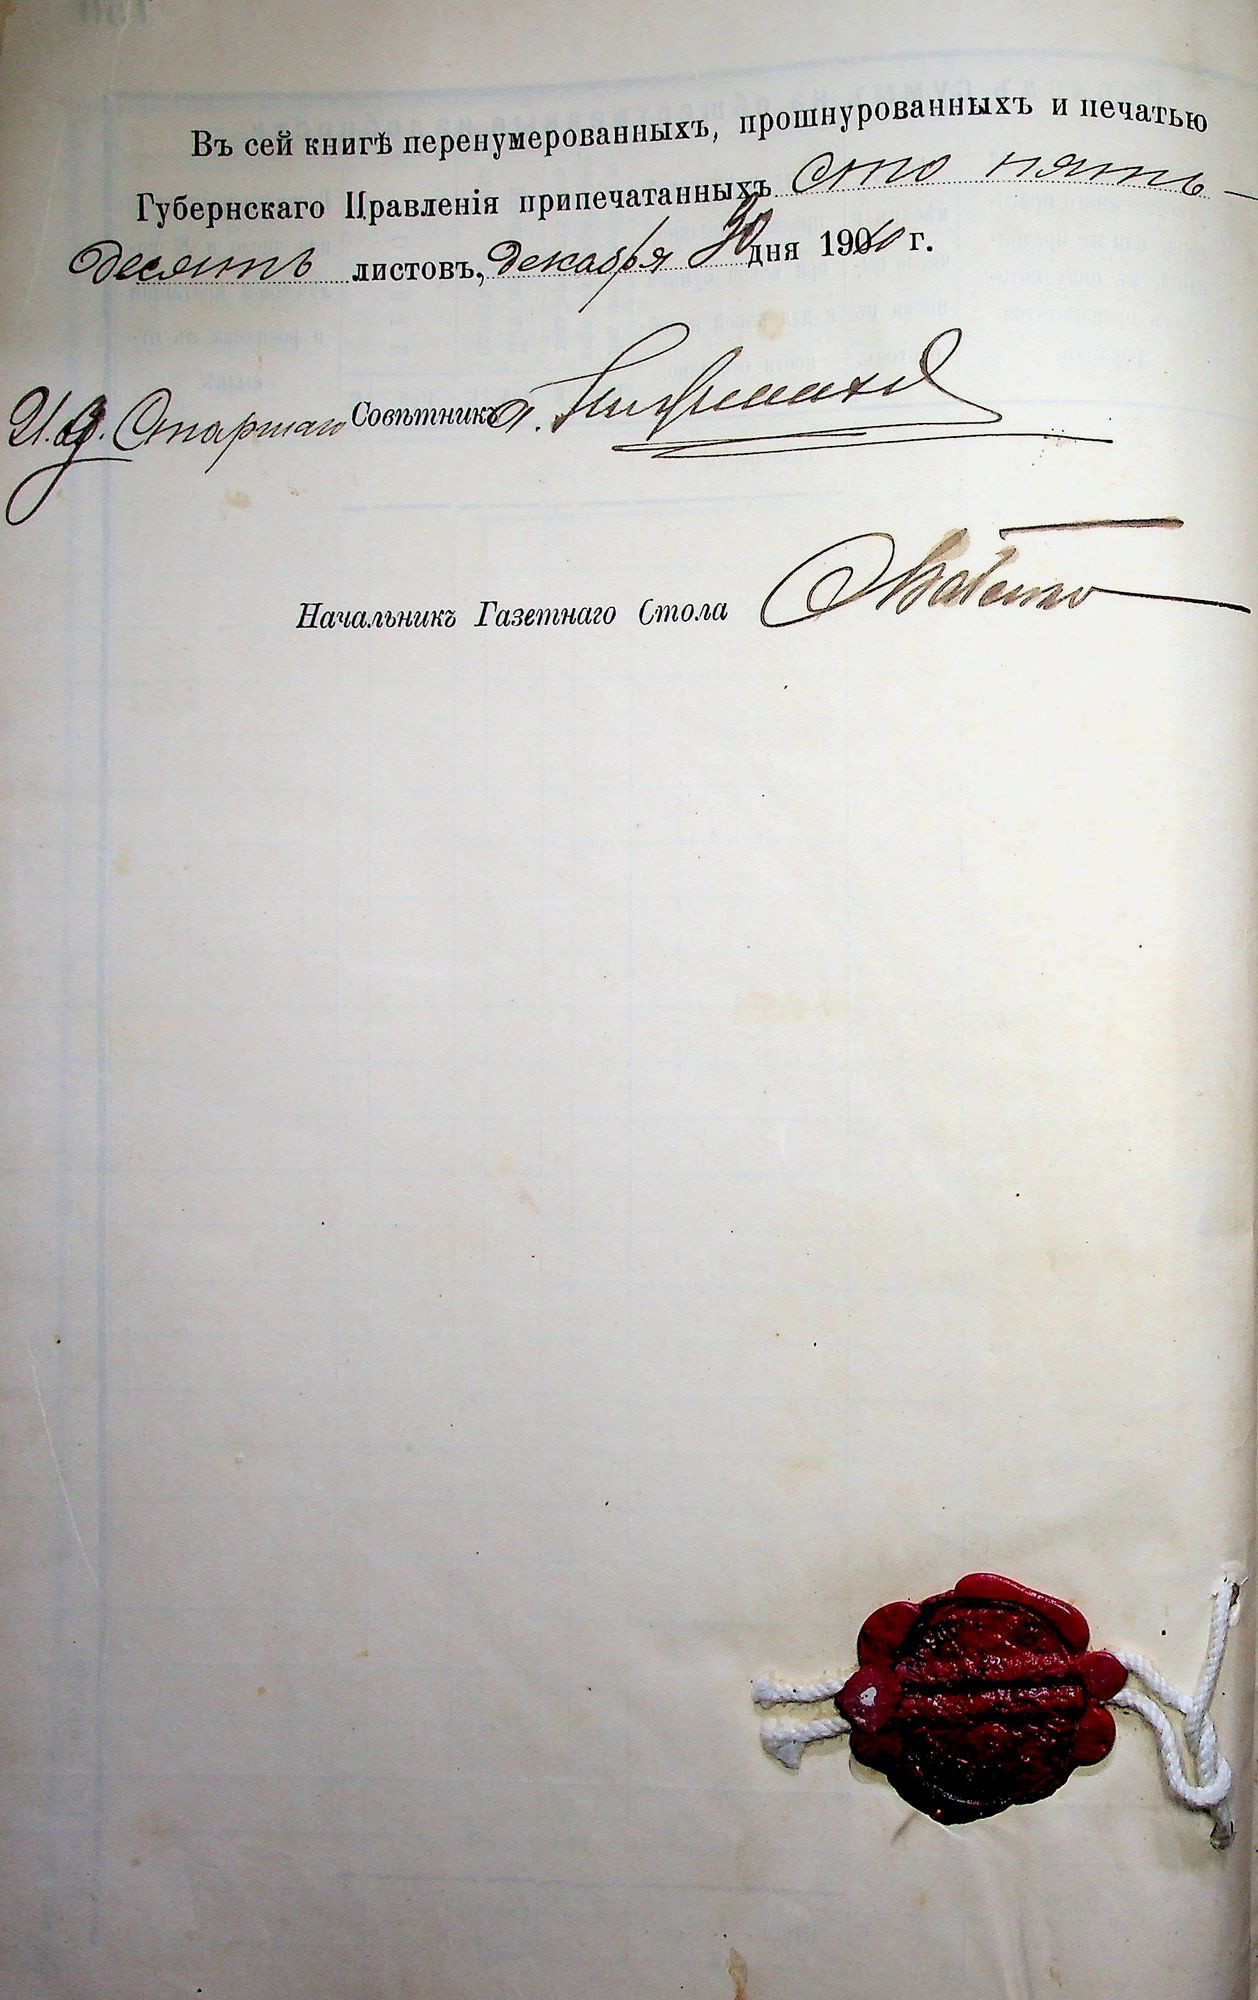 Въ сей книгѣ перенумерованныхъ, прошнурованныхъ и печатью
Губернскаго Правленія припечатанныхъ сто пять-
десятъ листовъ, декабря 30 дня 1910 г.
И. д. Старшаго Совѣтника
Начальникъ Газетнаго Стола